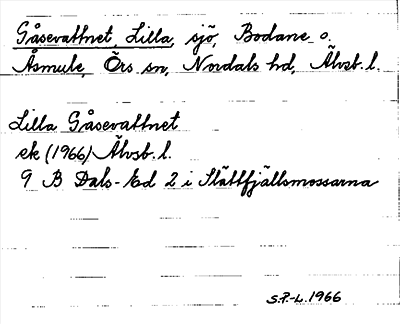 Gåsevattnet, Lilla, sjö, Bodane o.
Åsmule, Örs sn, Nordals hd, Älvsb. l.
Lilla Gåsevattnet
ek (1966) Älvsb. l.
9 B Dals-Ed 2 i Slättfjällsmossarna
S.P.-L. 1966